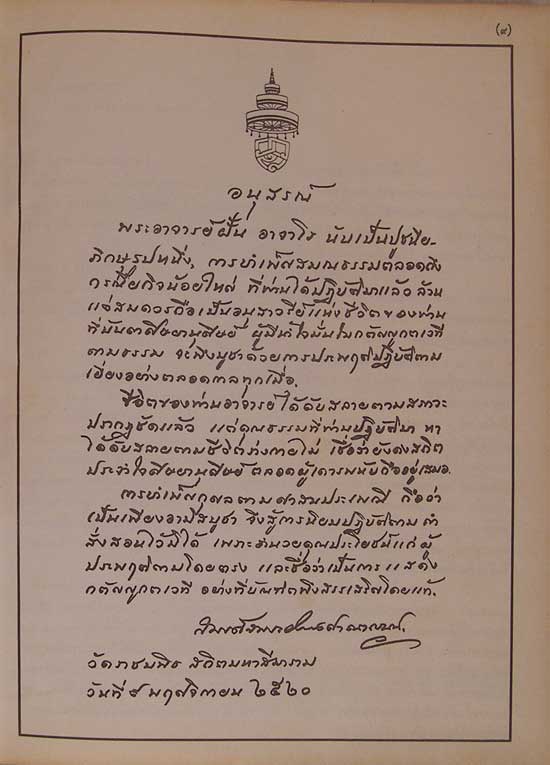 (๙)
อนุสรณ์
พระอาจารย์ฝั้น อาจาโร นับเป็นปูชนีย-
ภิกษุรูปหนึ่ง, การบำเพ็ญสมณธรรมตลอดถึง
กรณียกิจน้อยใหญ่ ที่ท่านได้ปฏิบัติมาแล้ว ล้วน
แต่สมควรถือเป็นอนุสาวรีย์แห่งชีวิตของท่าน
ที่บันดาศิษยานุศิษย์ ผู้มีน้ำใจมั่นในกตัญญูกตเวที
ตามธรรม จะพึงบูชาด้วยการประพฤติปฏิบัติตาม
เยี่ยงอย่างตลอดกาลทุกเมื่อ.
ชีวิตของท่านอาจารย์ได้ดับสลายตามสภาวะ
ปรากฏชัดแล้ว แต่คุณธรรมที่ท่านปฏิบัติมา หา
ได้ดับสลายตามชีวิตร่างกายไม่ เชื่อว่ายังคงสถิต
ประจำใจศิษยานุศิษย์ ตลอดผู้เคารพนับถืออยู่เสมอ.
การบำเพ็ญกุศลตามศาสนประเพณี ถือว่า
เป็นเพียงอามิสบูชา จึงสู้การนิยมปฏิบัติตาม คำ
สั่งสอนไว้มิได้ เพราะอำนวยคุณประโยชน์แก่ ผู้
ประพฤติตามโดยตรง และชื่อว่าเป็นการ แสดง
กตัญญูกตเวที อย่างที่บัณฑิตพึงสรรเสริญโดยแท้.
วัดราชบพิธ สถิตมหาสีมาราม
วันที่ ๙ พฤศจิกายน ๒๕๒๐